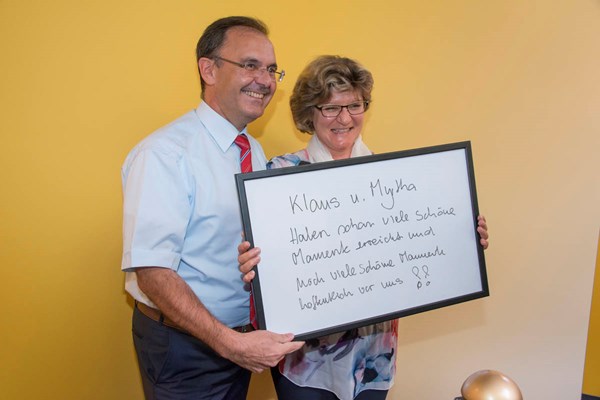 Klaus u. Mytha
Haben schon viele schöne
Momente erreicht und
Noch viele Schöne Momente
hoffentlich vor uns !!